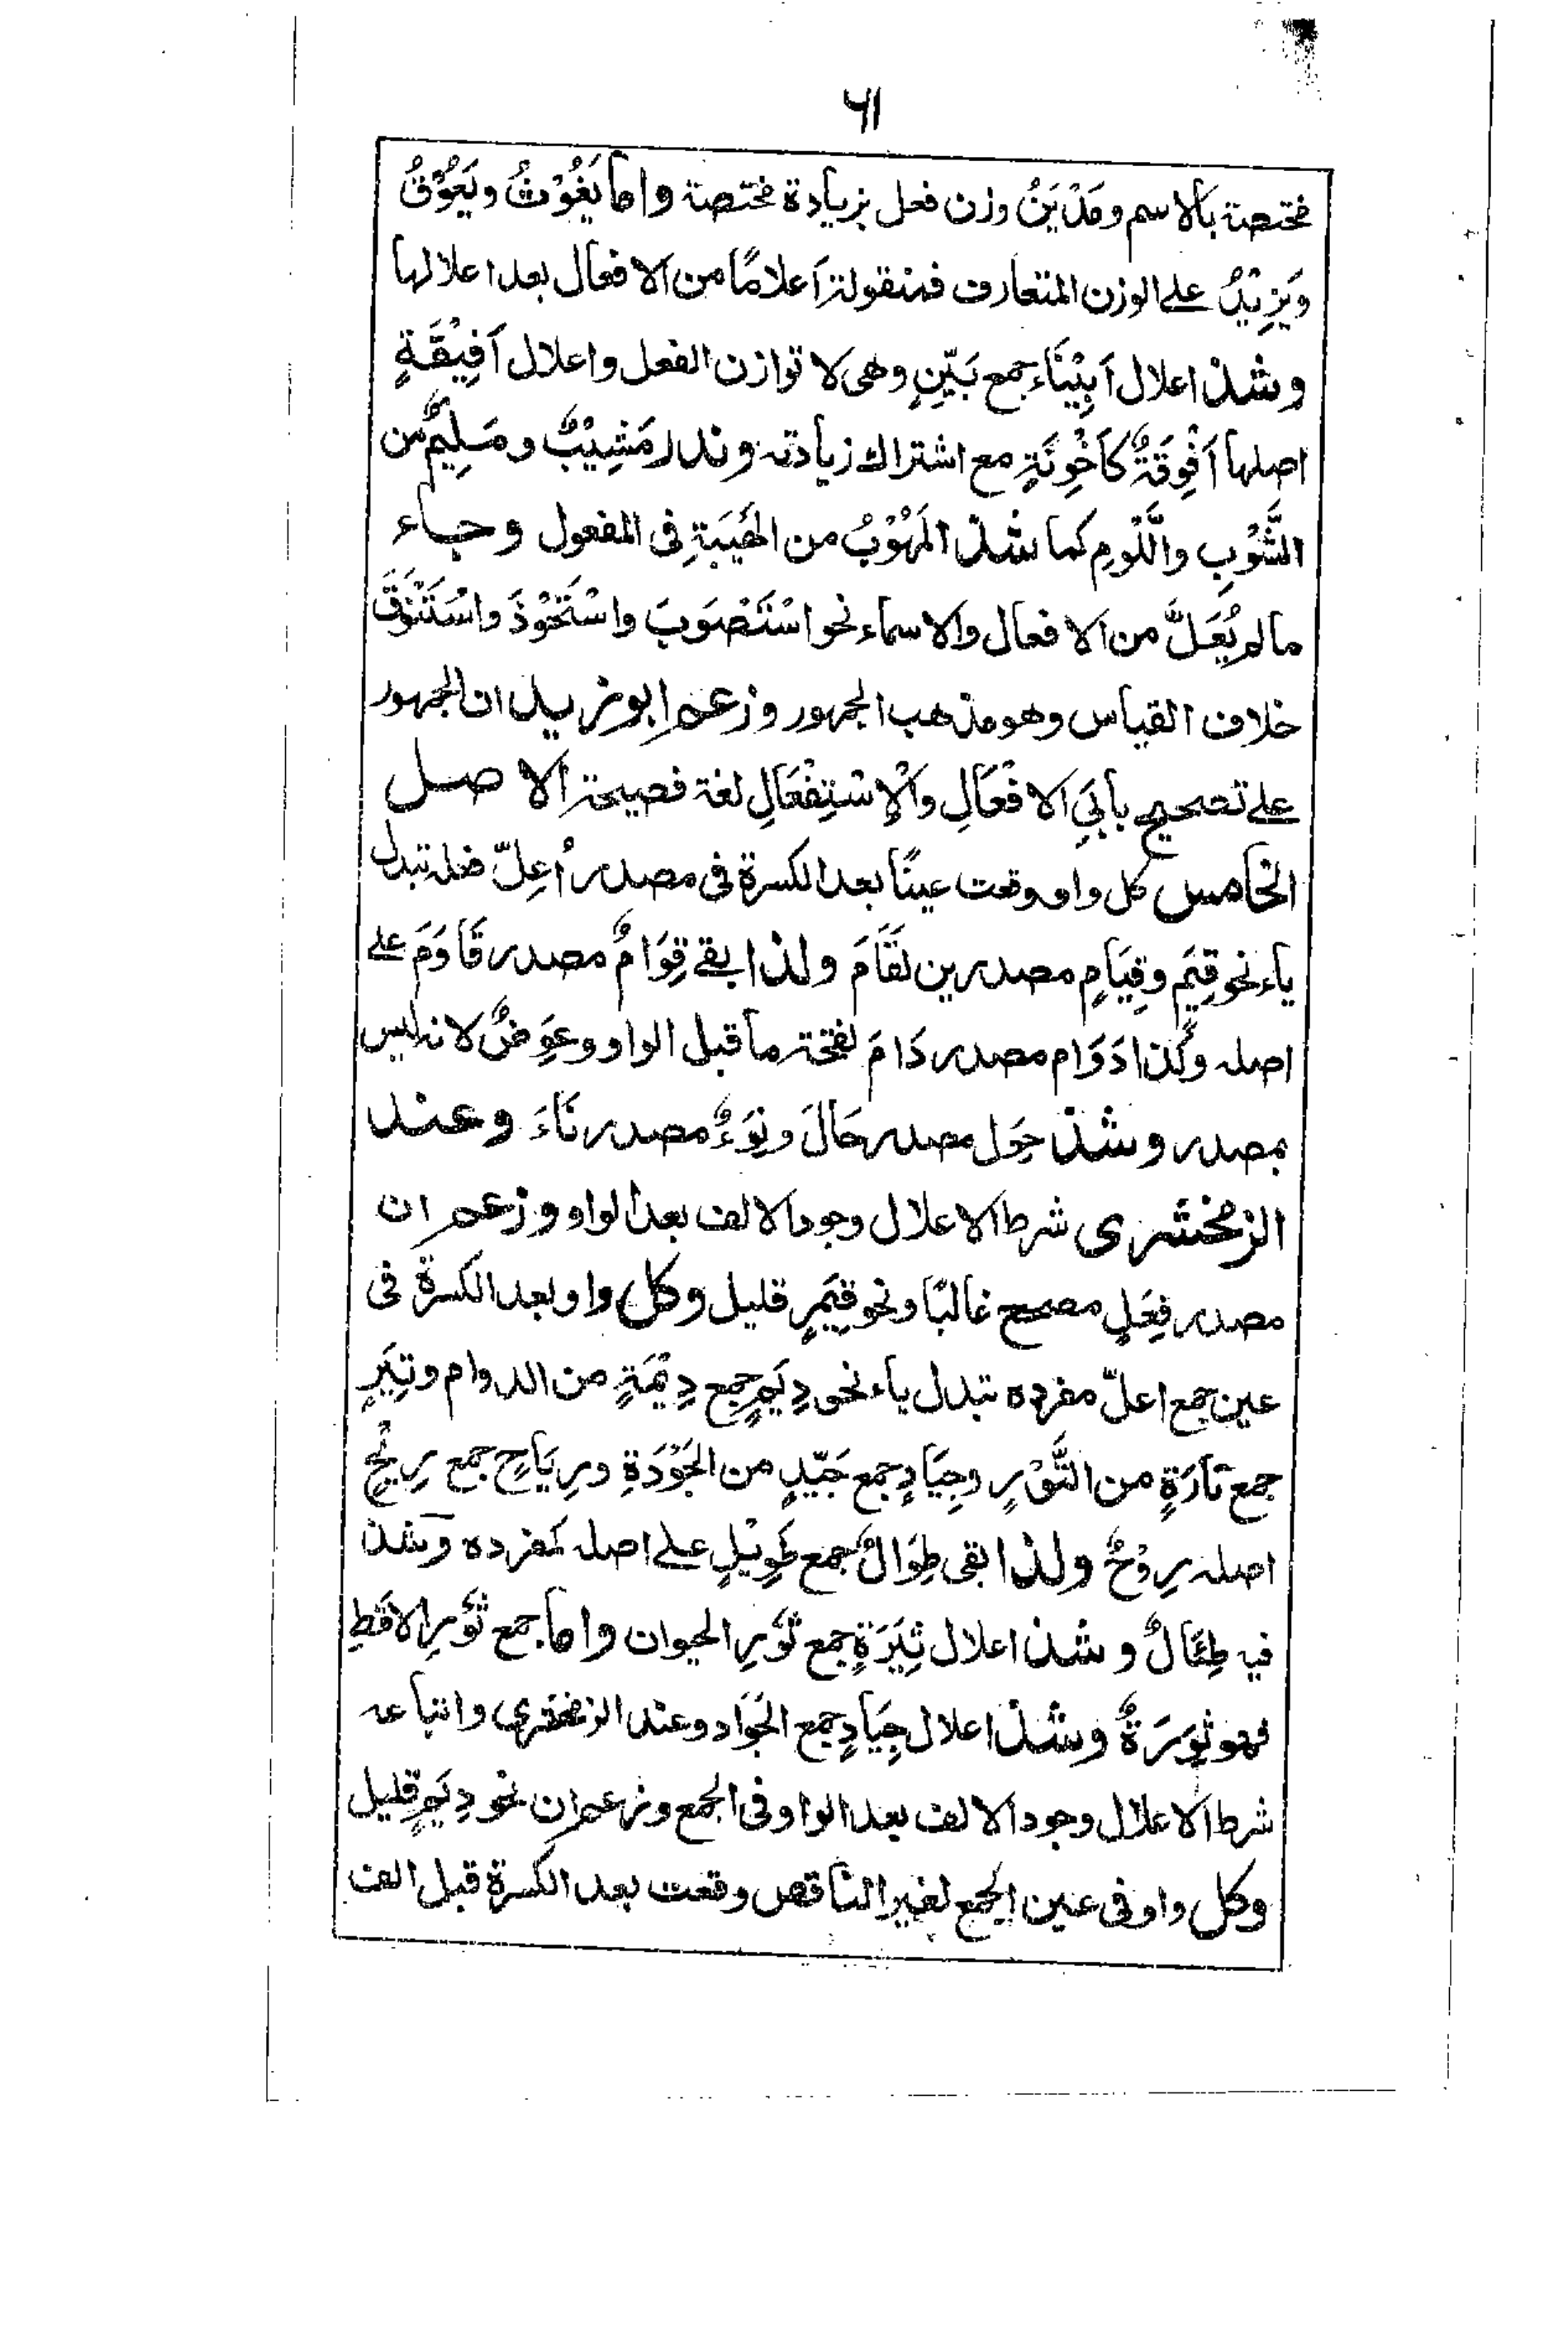 ۶۱
مختصة بالاسم ومَدْيَنُ وزن فعل بزيادة مختصة واما يَغُوْثُ ويَعُوْقُ
ويَزِيْدُ على الوزن المتعارف فمنقولة اَعلامًا من الافعال بعد اعلالها
وشذ اعلال اَبِيْنَاءَ جمع بَيِّنٍ وهى لا توازن الفعل واعلال اَفِيْقَةٍ
اصلها اَفْوِقَةٌ كَاَخْوِنَةٍ مع اشتراك زيادته وندر مَشِيْبٌ ومَلِيْمٌ من
الشَّوْبِ واللَّوْمِ كما شذ المَهُوْبُ من الهَيْبَةِ فى المفعول وجاء
مالم يُعَلَّ من الافعال والاسماء نحو اسْتَصْوَبَ واسْتَحْوَذَ واسْتَنْوَقَ
خلاف القياس وهو مذهب الجمهور وزعم ابو زيد ان الجمهور
على تصحيح بابَىِ الافْعَالِ والْاِسْتِفْعَالِ لغة فصيحة الاصل
الخامس كل واو وقعت عينًا بعد الكسرة فى مصدر اُعِلّ فعله تبدل
ياء نحو قِيَمٍ وقِيَامٍ مصدرين لقَامَ ولذا بقے قِوَامٌ مصدر قَاوَمَ على
اصله وكذا دَوَام مصدر دَامَ لفتحة ما قبل الواو وعِوَضٌ لانه ليس
بمصدر وشذ حِوَل مصدر حَالَ ونِوَءٌ مصدر نَاءَ وعند
الزمخشرى شرط الاعلال وجود الالف بعد الواو وزعم ان
مصدر فِعَلٍ مصحح غالبًا ونحو قِيَمٍ قليل وكل واو بعد الكسرة فى
عين جمع اعلّ مفرده تبدل ياء نحو دِيَمٍ جمع دِيْمَةٍ من الدوام وتِيَرٍ
جمع تَارَةٍ من التَّوْرِ وجِيَادٍ جمع جَيِّدٍ من الجَوْدَةِ ورِيَاحٍ جمع رِيْحٍ
اصله رِوْحٌ ولذا بقى طِوَالٌ جمع طَوِيْلٍ على اصله كمفرده وشذ
فيه طِيَالٌ وشذ اعلال ثِيَرَةٍ جمع ثَوْرِ الحيوان واما جمع ثَوْرِ الاقطِ
فهو ثِوَرَةٌ وشذ اعلال جِيَادٍ جمع الجَوَاد وعند الزمخشرى واتباعه
شرط الاعلال وجود الالف بعد الواو فى الجمع وزعم ان نحو دِيَمٍ قليل
وكل واو فى عين الجمع لغير الناقص وقعت بعد الكسرة قبل الف